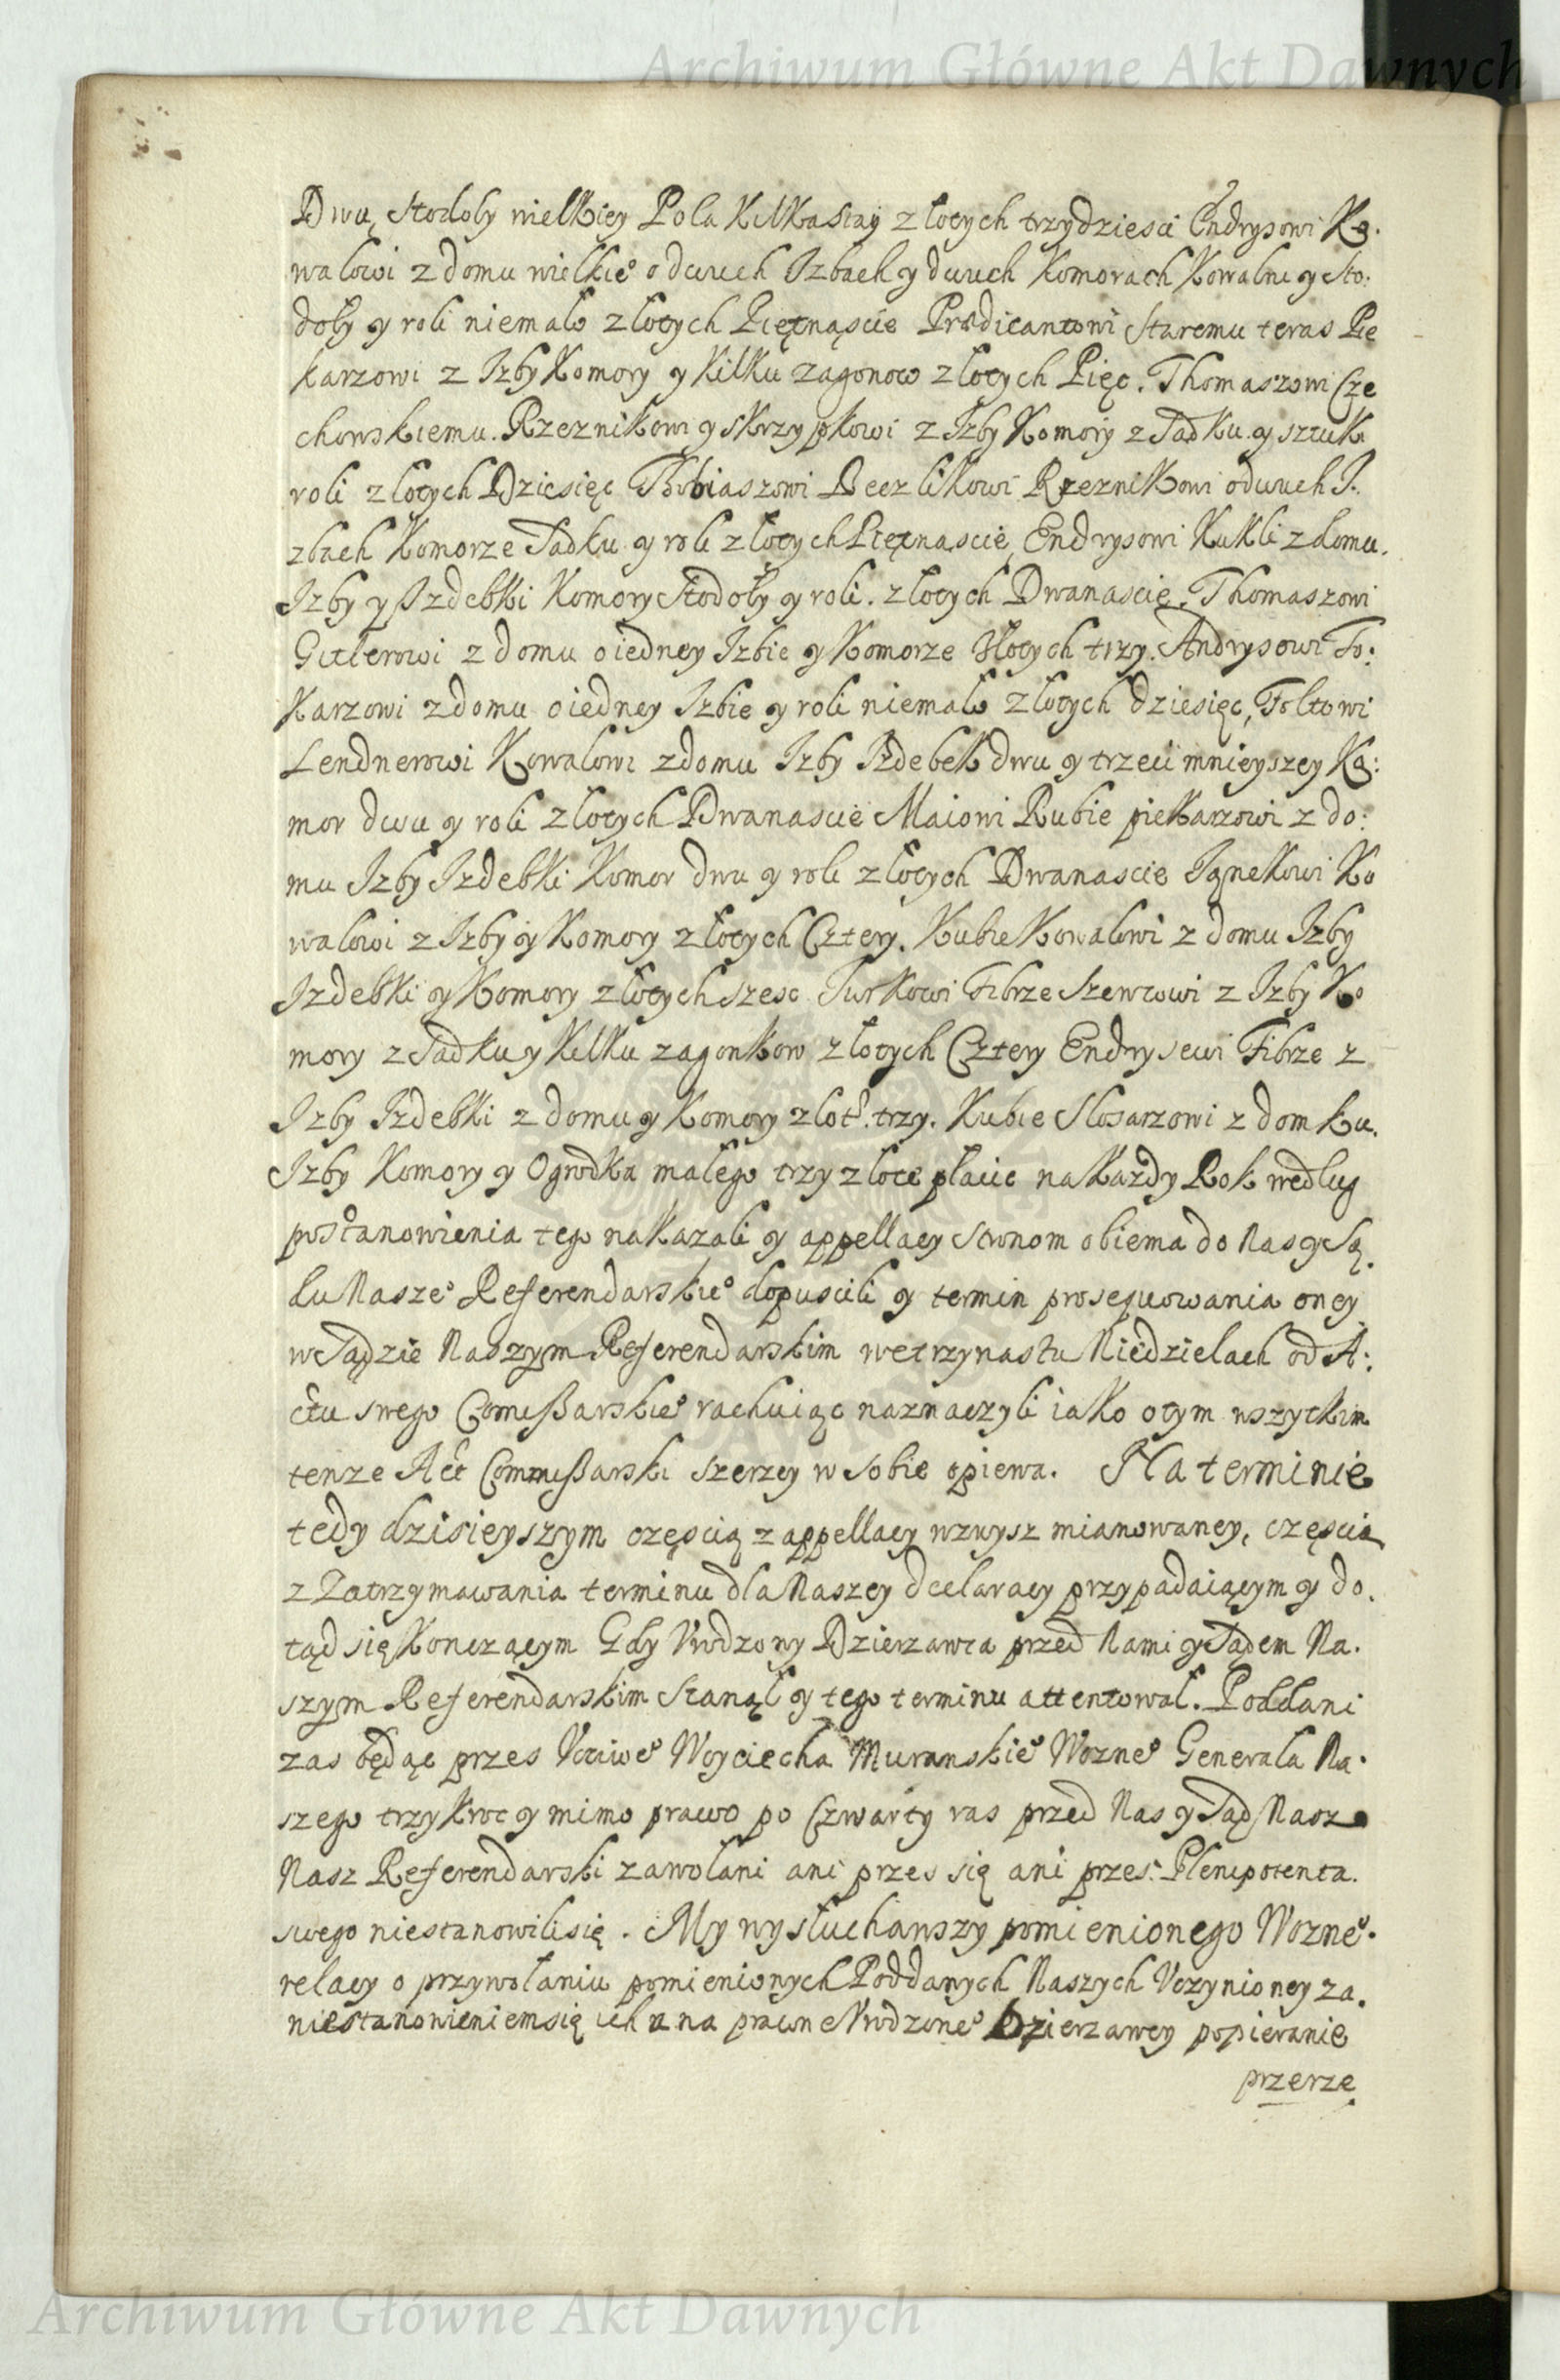 Archiwum Główne Akt Dawnych
Dwu, Stodoły wielkiey Pola Kilkastay złotych trzydziesci Endrysowi Ko.
walowi z domu wielkie° o dwuch Izbach y dwuch Komorach Kowalni y Sto:
doły y roli niemało złotych Piętnąscie Prædicantowi Staremu teras Pie
karzowi z Izby Komory y Kilku zagonow złotych Pięc. Thomaszowi Cze
chowskiemu. Rzeznikowi y Skrzypkowi z Izby Komory z Sadku y sztuki
roli złotych Dziesięc Thobiaszowi Beczlikowi Rzeznikowi o dwuch I.
zbach Komorze Sadku y roli złotych Piętnascie, Endrysowi Kukli z domu.
Izby y Izdebki Komory Stodoły y roli. złotych Dwanascie. Thomaszowi
Gutlerowi z domu o iedney Izbie y Komorze złotych trzy. Andrysowi To:
karzowi z domu o iedney Izbie y roli niemało złotych dziesięc, Foltowi
Lendnerowi Kowalowi z domu Izby Izdebek dwu y trzeci mnieyszey Ko:
mor dwu y roli złotych Dwanascie Maiowi Rubie piekarzowi z do:
mu Izby Izdebki Komor dwu y roli złotych Dwanascie Ianekowi Ko
walowi z Izby y Komory złotych Cztery. Kubie Kowalowi z domu Izby
Izdebki y Komory złotych szesc Jurkowi Fibrze Szewcowi z Izby Ko
mory z Sadku y Kilku zagonkow złotych Cztery Endrysewi Fibrze z
Izby Izdebki z domu y Komory złot. trzy. Kubie Slosarzowi z domku.
Izby Komory y Ogrodka małego trzy złote płacic na Każdy Rok według
postanowienia tego nakazali y appellacy stronom obiema do Nas y Są.
du Nasze° Referendarskie° dopuscili y termin prosequowania oney
w Sądzie Naszym Referendarskim wetrzynastu Niedzielach od A:
ctu swego Comissarskie° rachuiąc naznaczyli iako o tym wszytkim
tenze Act Commissarski szerzey w sobie opiewa. Na terminie
tedy dzisieyszym częscią z appellacy wzwysz mianowaney, częscią
z Zatrzymawania terminu dla Naszey declaracy przypadaiącym y do.
tąd się Konczącym Gdy Urodzony Dzierzawca przed Nami y Sądem Na.
szym Referendarskim Stanął y tego terminu attentował. Poddani
zas będąc przes Uczciwe° Woyciecha Muranskie° Wozne° Generała Na.
szego trzykroc y mimo prawo po Czwarty ras przed Nas y Sąd Nasz
Nasz Referendarski zawołani ani przes się ani przes Plenipotenta.
swego niestanowili się. My wysłuchawszy pomienionego Wozne°.
relacy o przywołaniu pomienionych Poddanych Naszych Uczynioney za.
niestanowieniem się ich a na prawne Urodzone° Dzierzawcy popieranie
przerze
Archiwum Główne Akt Dawnych